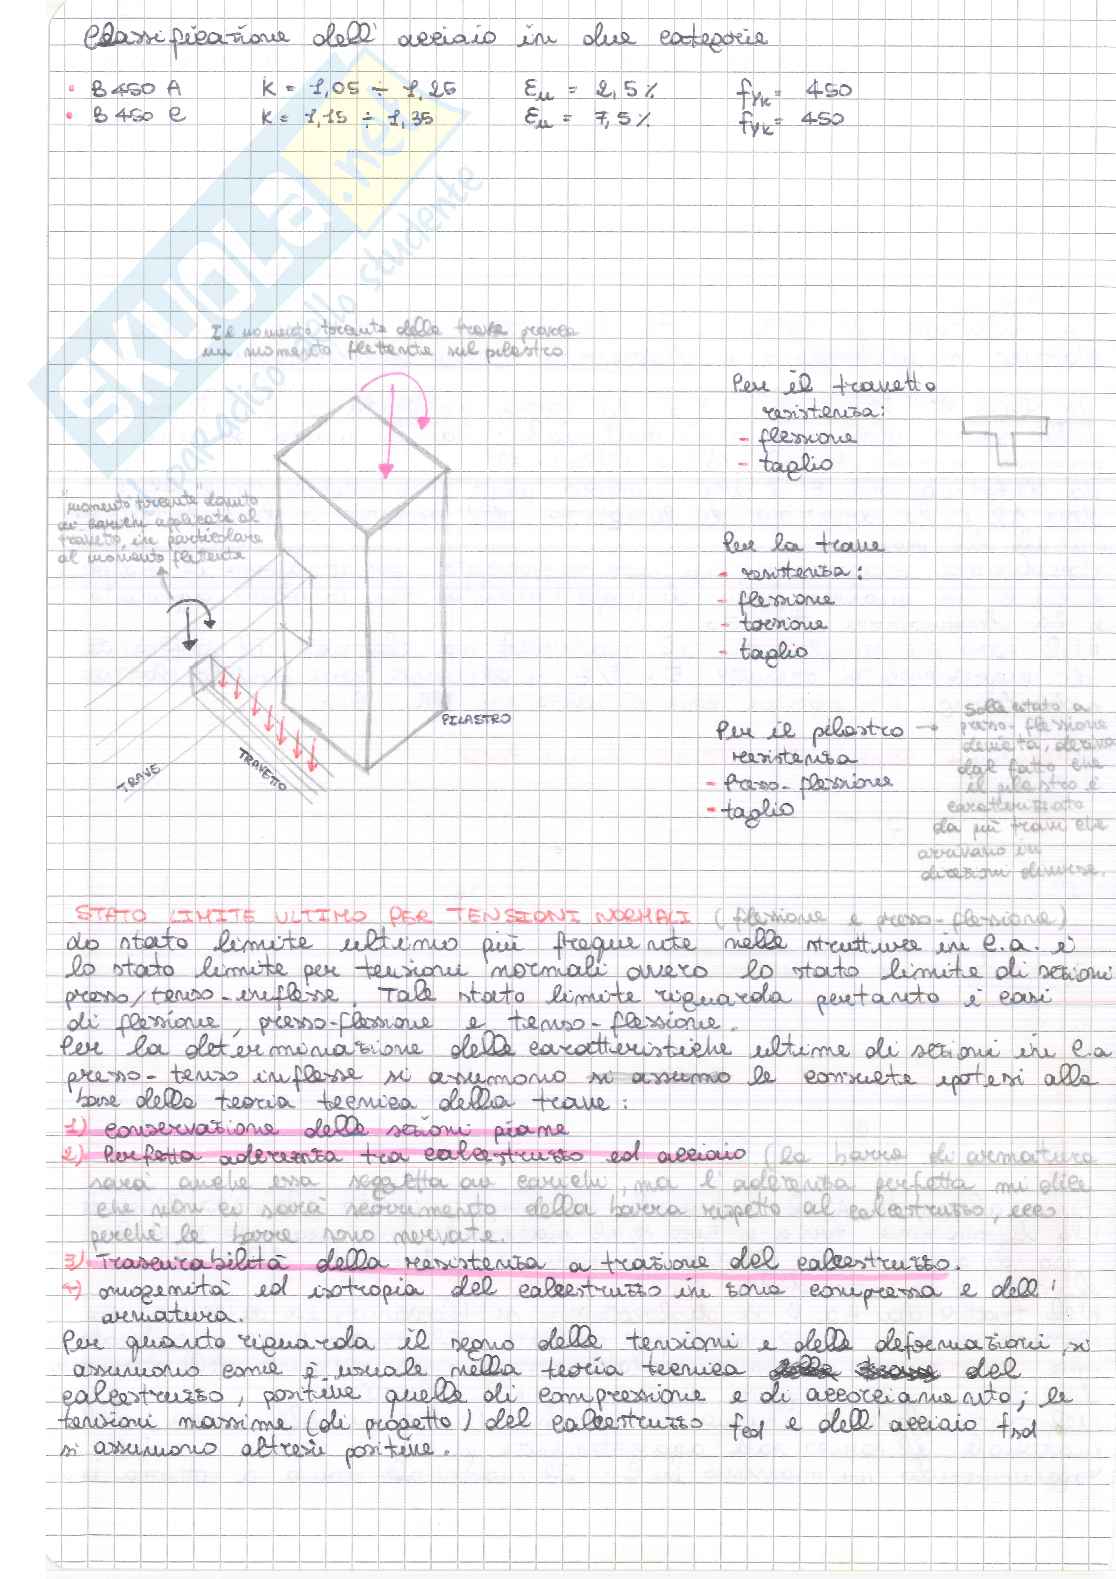 Classificazione dell'acciaio in due categorie
• B450 A K = 1,05 ÷ 1,25 εu = 2,5% fyk = 450
• B450 C K = 1,15 ÷ 1,35 εu = 7,5% fyk = 450
SKUOLA.net
il paradiso dello studente
Il momento torcente della trave provoca
un momento flettente sul pilastro
"momento torcente" dovuto
ai carichi applicati al
travetto, in particolare
al momento flettente
PILASTRO
TRAVE
TRAVETTO
Per il travetto
resistenza:
- flessione
- taglio
Per la trave
- resistenza:
- flessione
- torsione
- taglio
Per il pilastro →
resistenza
- Presso-flessione
- taglio
Sollecitato a
presso-flessione
deviata, deriva
dal fatto che
il pilastro è
caratterizzato
da più travi che
arrivano in
direzioni diverse.
STATO LIMITE ULTIMO PER TENSIONI NORMALI (flessione e presso-flessione)
Lo stato limite ultimo più frequente nelle strutture in C.a. è
lo stato limite per tensioni normali ovvero lo stato limite di sezioni
presso/tenso-inflesse. Tale stato limite riguarda pertanto i casi
di flessione, presso-flessione e tenso-flessione.
Per la determinazione delle caratteristiche ultime di sezioni in C.a
presso-tenso inflesse si assumono si assumo le consuete ipotesi alla
base della teoria tecnica della trave:
1) conservazione delle sezioni piane
2) Perfetta aderenza tra calcestruzzo ed acciaio (la barra di armatura
sarà anche essa soggetta ai carichi, ma l'aderenza perfetta mi dice
che non ci sarà scorrimento della barra rispetto al calcestruzzo, ecco
perché le barre sono nervate.
3) Trascurabilità della resistenza a trazione del calcestruzzo.
4) omogenità ed isotropia del calcestruzzo in zona compressa e dell'
armatura.
Per quanto riguarda il segno delle tensioni e delle deformazioni, si
assumono come è usuale nella teoria tecnica del
calcestruzzo, positive quelle di compressione e di accorciamento; le
tensioni massime (di progetto) del calcestruzzo fcd e dell'acciaio fsd
si assumono altresì positive.